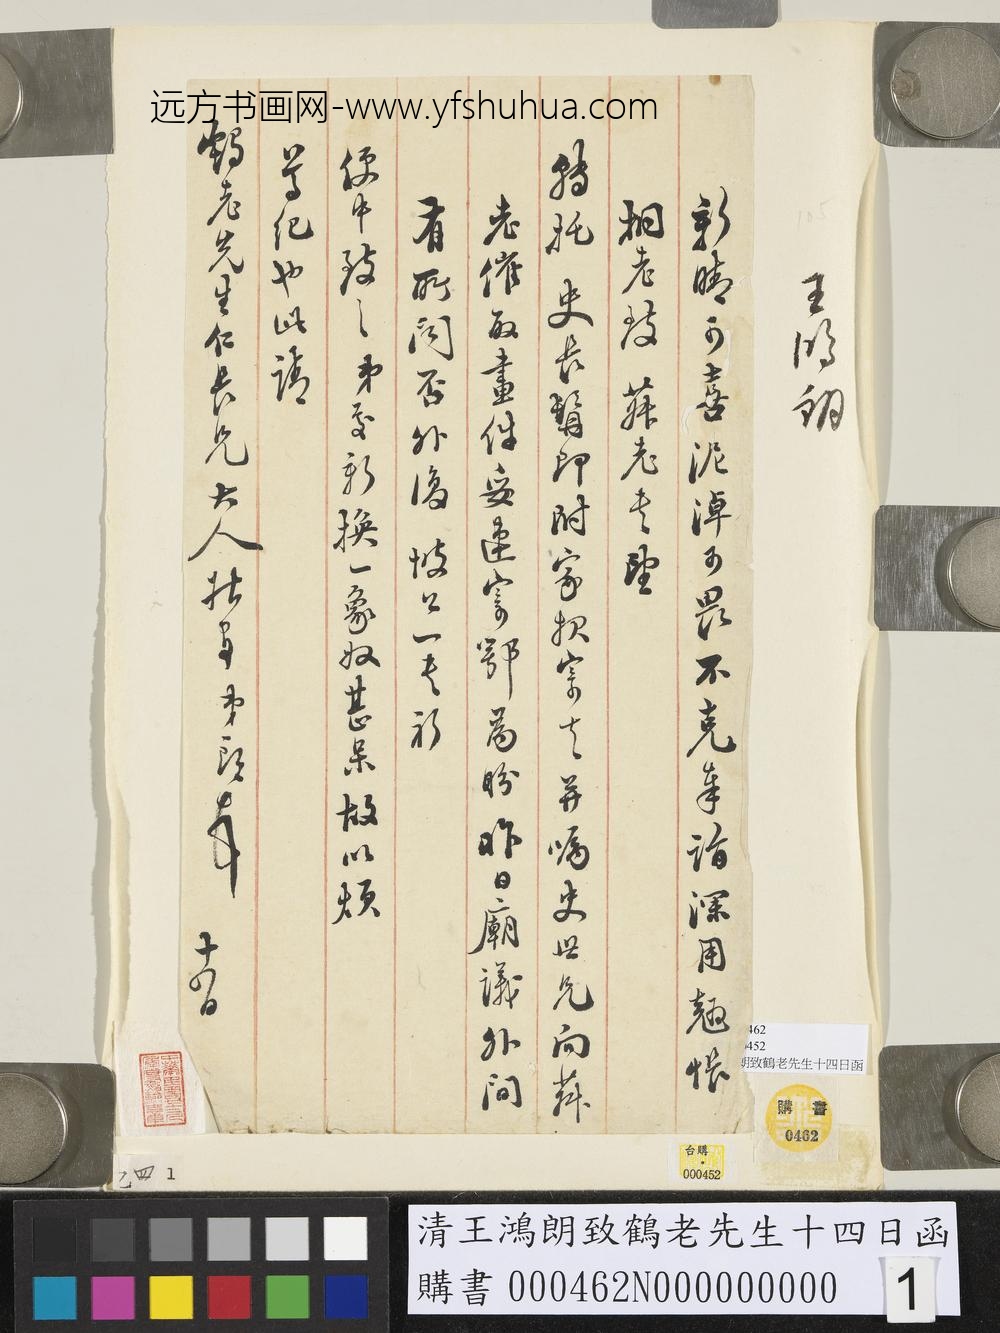 远方书画网-www.yfshuhua.com
王鴻朗
新晴可喜泥淖可畏不克奉詣深用翹悵
桐老致蓀老書望
轉托 史長賢即附家報寄去并囑史世兄向蓀
老催取畫件妥速寄鄂為盼昨日廟議外間
有所聞否外復 坡公一書祈
便中致之弟處新換一象奴甚呆故以煩
尊紀也此請
鶴老先生仁長兄大人 弟 頓首
十四日
462
0452
朗致鶴老先生十四日函
購書
0462
台購
000452
乙四 1
清王鴻朗致鶴老先生十四日函
購書 000462N000000000
1